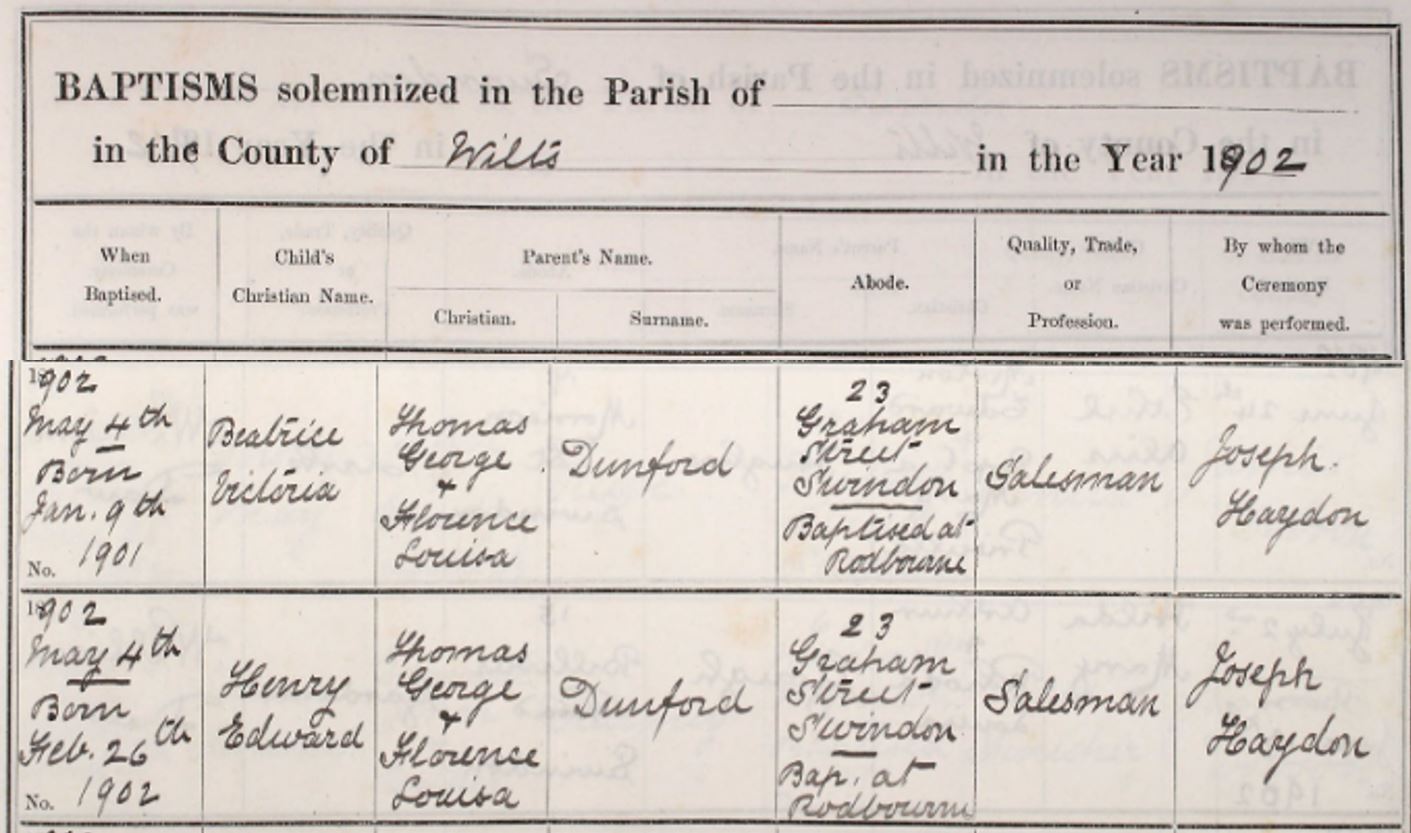 BAPTISMS solemnized in the Parish of
in the County of Wilts in the Year 1902
When Baptised.
Child's Christian Name.
Parent's Name.
Christian.
Surname.
Abode.
Quality, Trade, or Profession.
By whom the Ceremony was performed.
1902
May 4th
Born
Jan. 9th
No. 1901
Beatrice
Victoria
Thomas
George
+
Florence
Louisa
Dunford
23
Graham
Street
Swindon
Baptised at
Rodbourne
Salesman
Joseph
Haydon
1902
May 4th
Born
Feb. 26th
No. 1902
Henry
Edward
Thomas
George
+
Florence
Louisa
Dunford
23
Graham
Street
Swindon
Bap. at
Rodbourne
Salesman
Joseph
Haydon